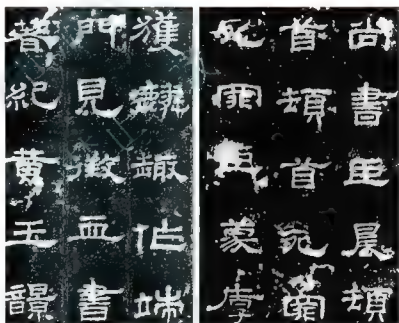 尚書臣晨頓
首頓首死罪
死罪臣蒙厚
獲麟趣作端
門見徵血書
著紀黃玉𩐿